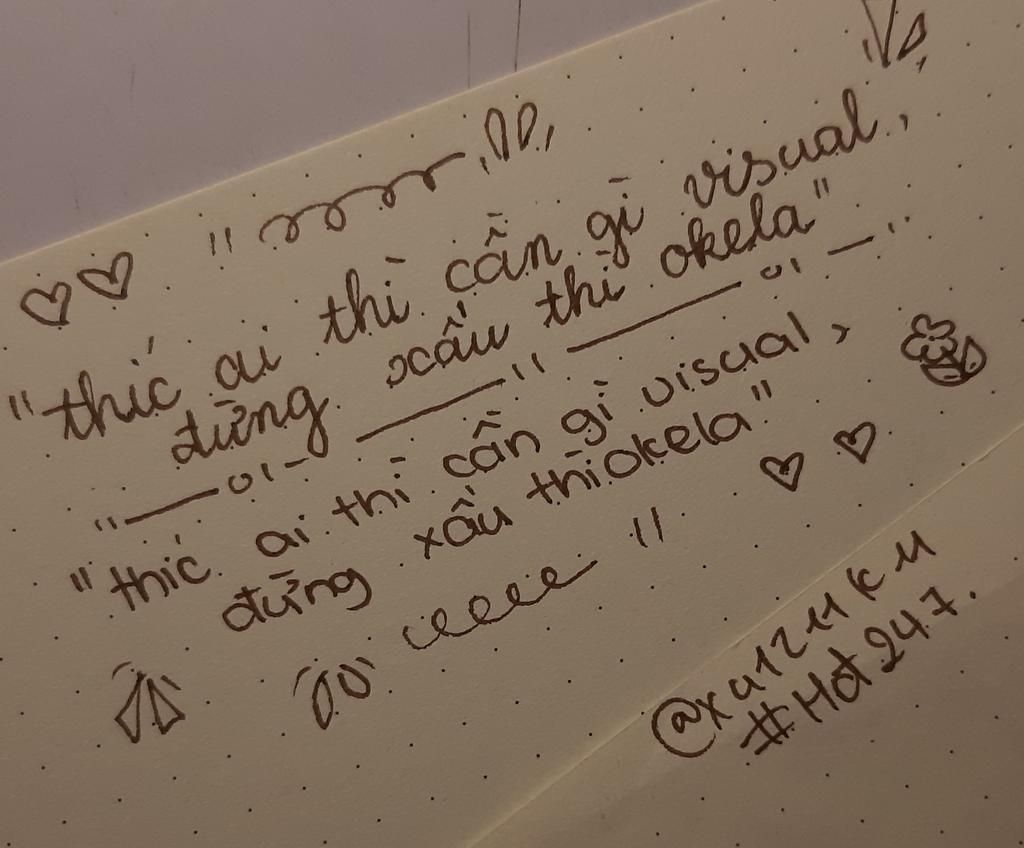 "thíc ai thì cần gì visual,
đừng xấu thì okela"
"thíc ai thì cần gì visual,
đừng xấu thì okela"
@xu1211KM
#Hot247.